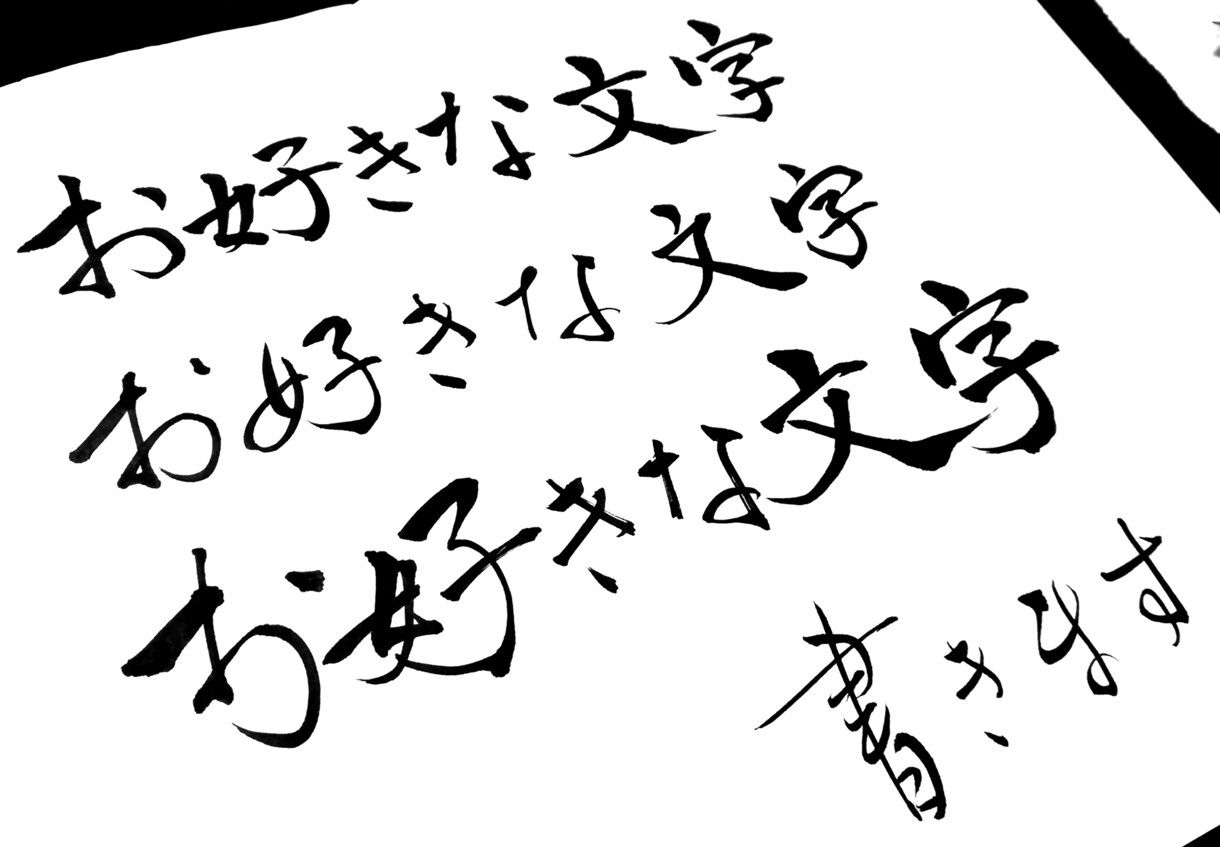 お好きな文字
お好きな文字
お好きな文字
書きます